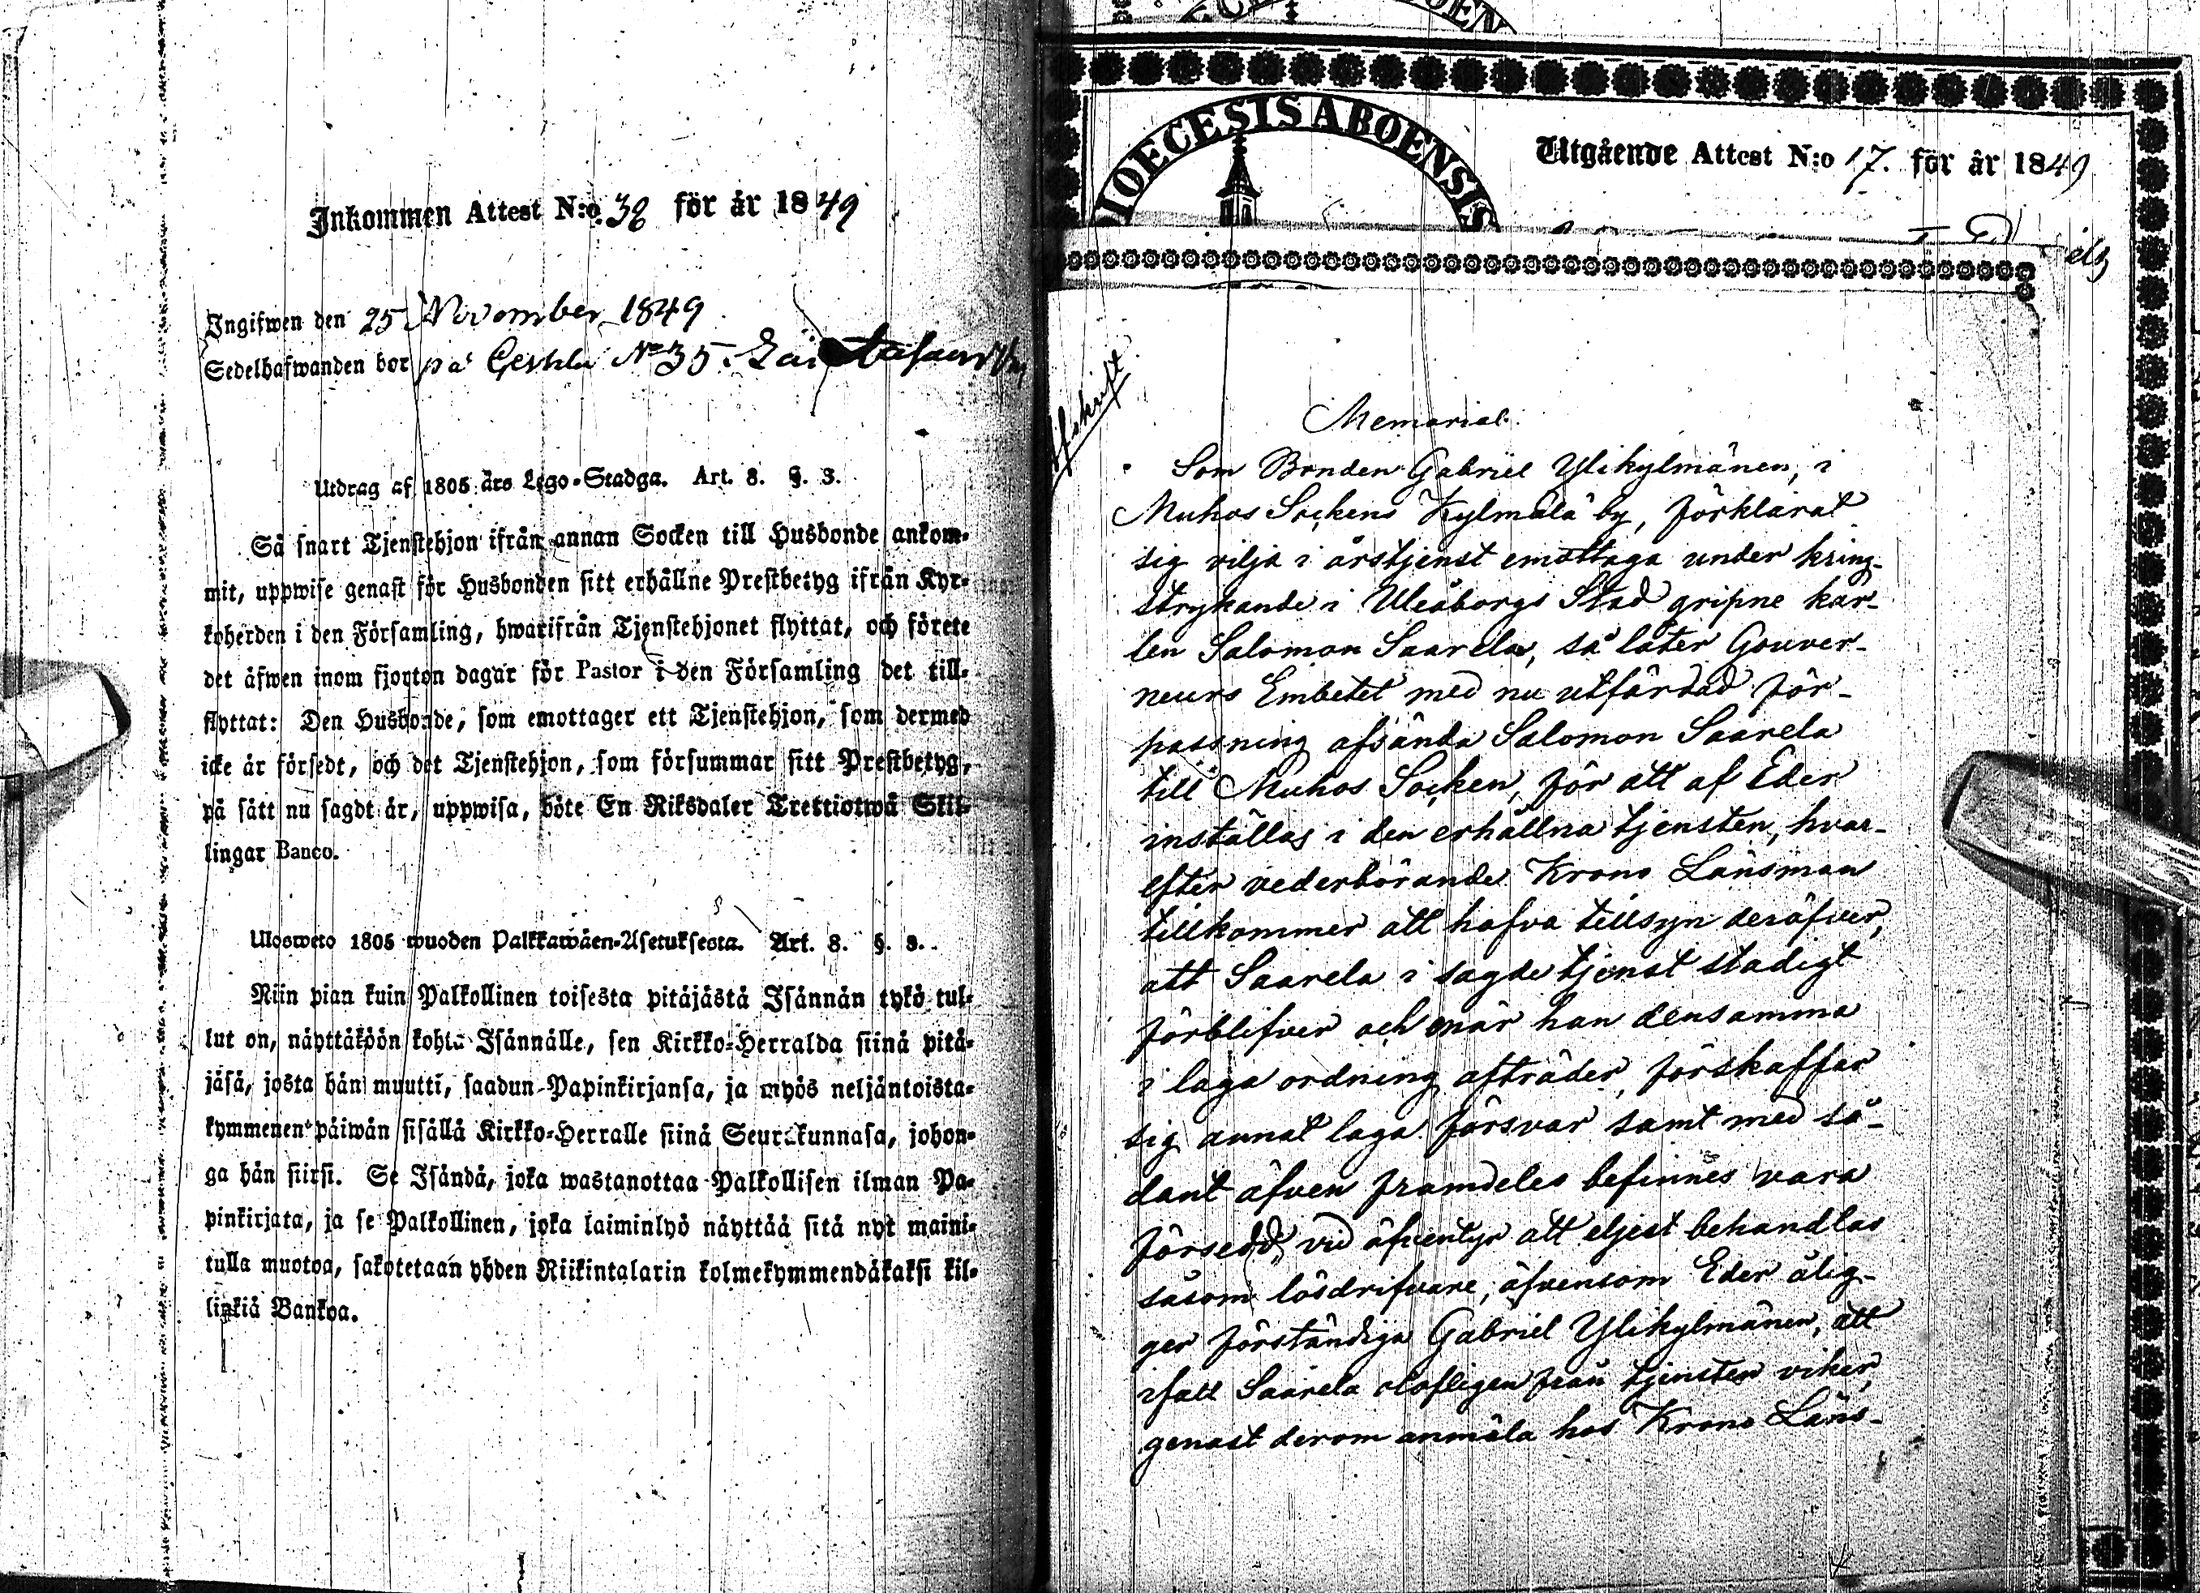 Inkommen Attest N:o 38 för år 1849
Ingifwen den 25 November 1849
Sedelhafwanden bor på N:o 35.
Utdrag af 1805 års Lego-Stadga. Art. 8. §. 3.
Så snart Tjenstehjon ifrån annan Socken till Husbonde ankom-
mit, uppwise genast för Husbonden sitt erhållne Prestbetyg ifrån Kyr-
koherden i den Församling, hwarifrån Tjenstehjonet flyttat, och förete
det äfwen inom fjorton dagar för Pastor i den Församling det till-
flyttat: Den Husbonde, som emottager ett Tjenstehjon, som dermed
icke är försedt, och det Tjenstehjon, som försummar sitt Prestbetyg,
på sätt nu sagdt är, uppwisa, böte En Riksdaler Trettiotwå Skil-
lingar Banco.
Ulosweto 1805 wuoden Palkkawäen-Asetuksesta. Art. 8. §. 3.
Niin pian kuin Palkollinen toisesta pitäjästä Isännän tykö tul-
lut on, näyttäköön kohta Isännälle, sen Kirkko-Herralda siinä pitä-
jäsä, josta hän muutti, saadun Papinkirjansa, ja myös neljäntoista-
kymmenen päiwän sisällä Kirkko-Herralle siinä Seurakunnasa, johon-
ga hän siirsi. Se Isändä, joka wastanottaa Palkollisen ilman Pa-
pinkirjata, ja se Palkollinen, joka laiminlyö näyttää sitä nyt maini-
tulla muotoa, sakotetaan yhden Riikintalarin kolmekymmendäkaksi kil-
linkiä Bankoa.
IOECESIS ABOENSIS
Utgående Attest N:o 17. för år 1849
Afskrift
Memorial.
Som Bonden Gabriel Ylikylmänen, i
Muhos Sockens Kylmälä by, förklarat
sig vilja i årstjenst emottaga under kring-
strykande i Uleåborgs Stad gripne kar-
len Salomon Saarela, så låter Gouver-
neurs Embetet med nu utfärdad för-
passning afsända Salomon Saarela
till Muhos Socken, för att af Eder
inställas i den erhållna tjensten, hvar-
efter vederbörande Krono Länsman
tillkommer att hafva tillsyn deröfver,
att Saarela i sagde tjenst stadigt
förblifver och när han densamma
i laga ordning afträder, förskaffar
sig annat laga försvar samt med så-
dant äfven framdeles befinnes vara
försedd, vid äfventyr att eljest behandlas
såsom lösdrifvare, äfvensom Eder ålig-
ger förständiga Gabriel Ylikylmänen, att
ifall Saarela olofligen från tjensten viker,
genast derom anmäla hos Krono Läns-